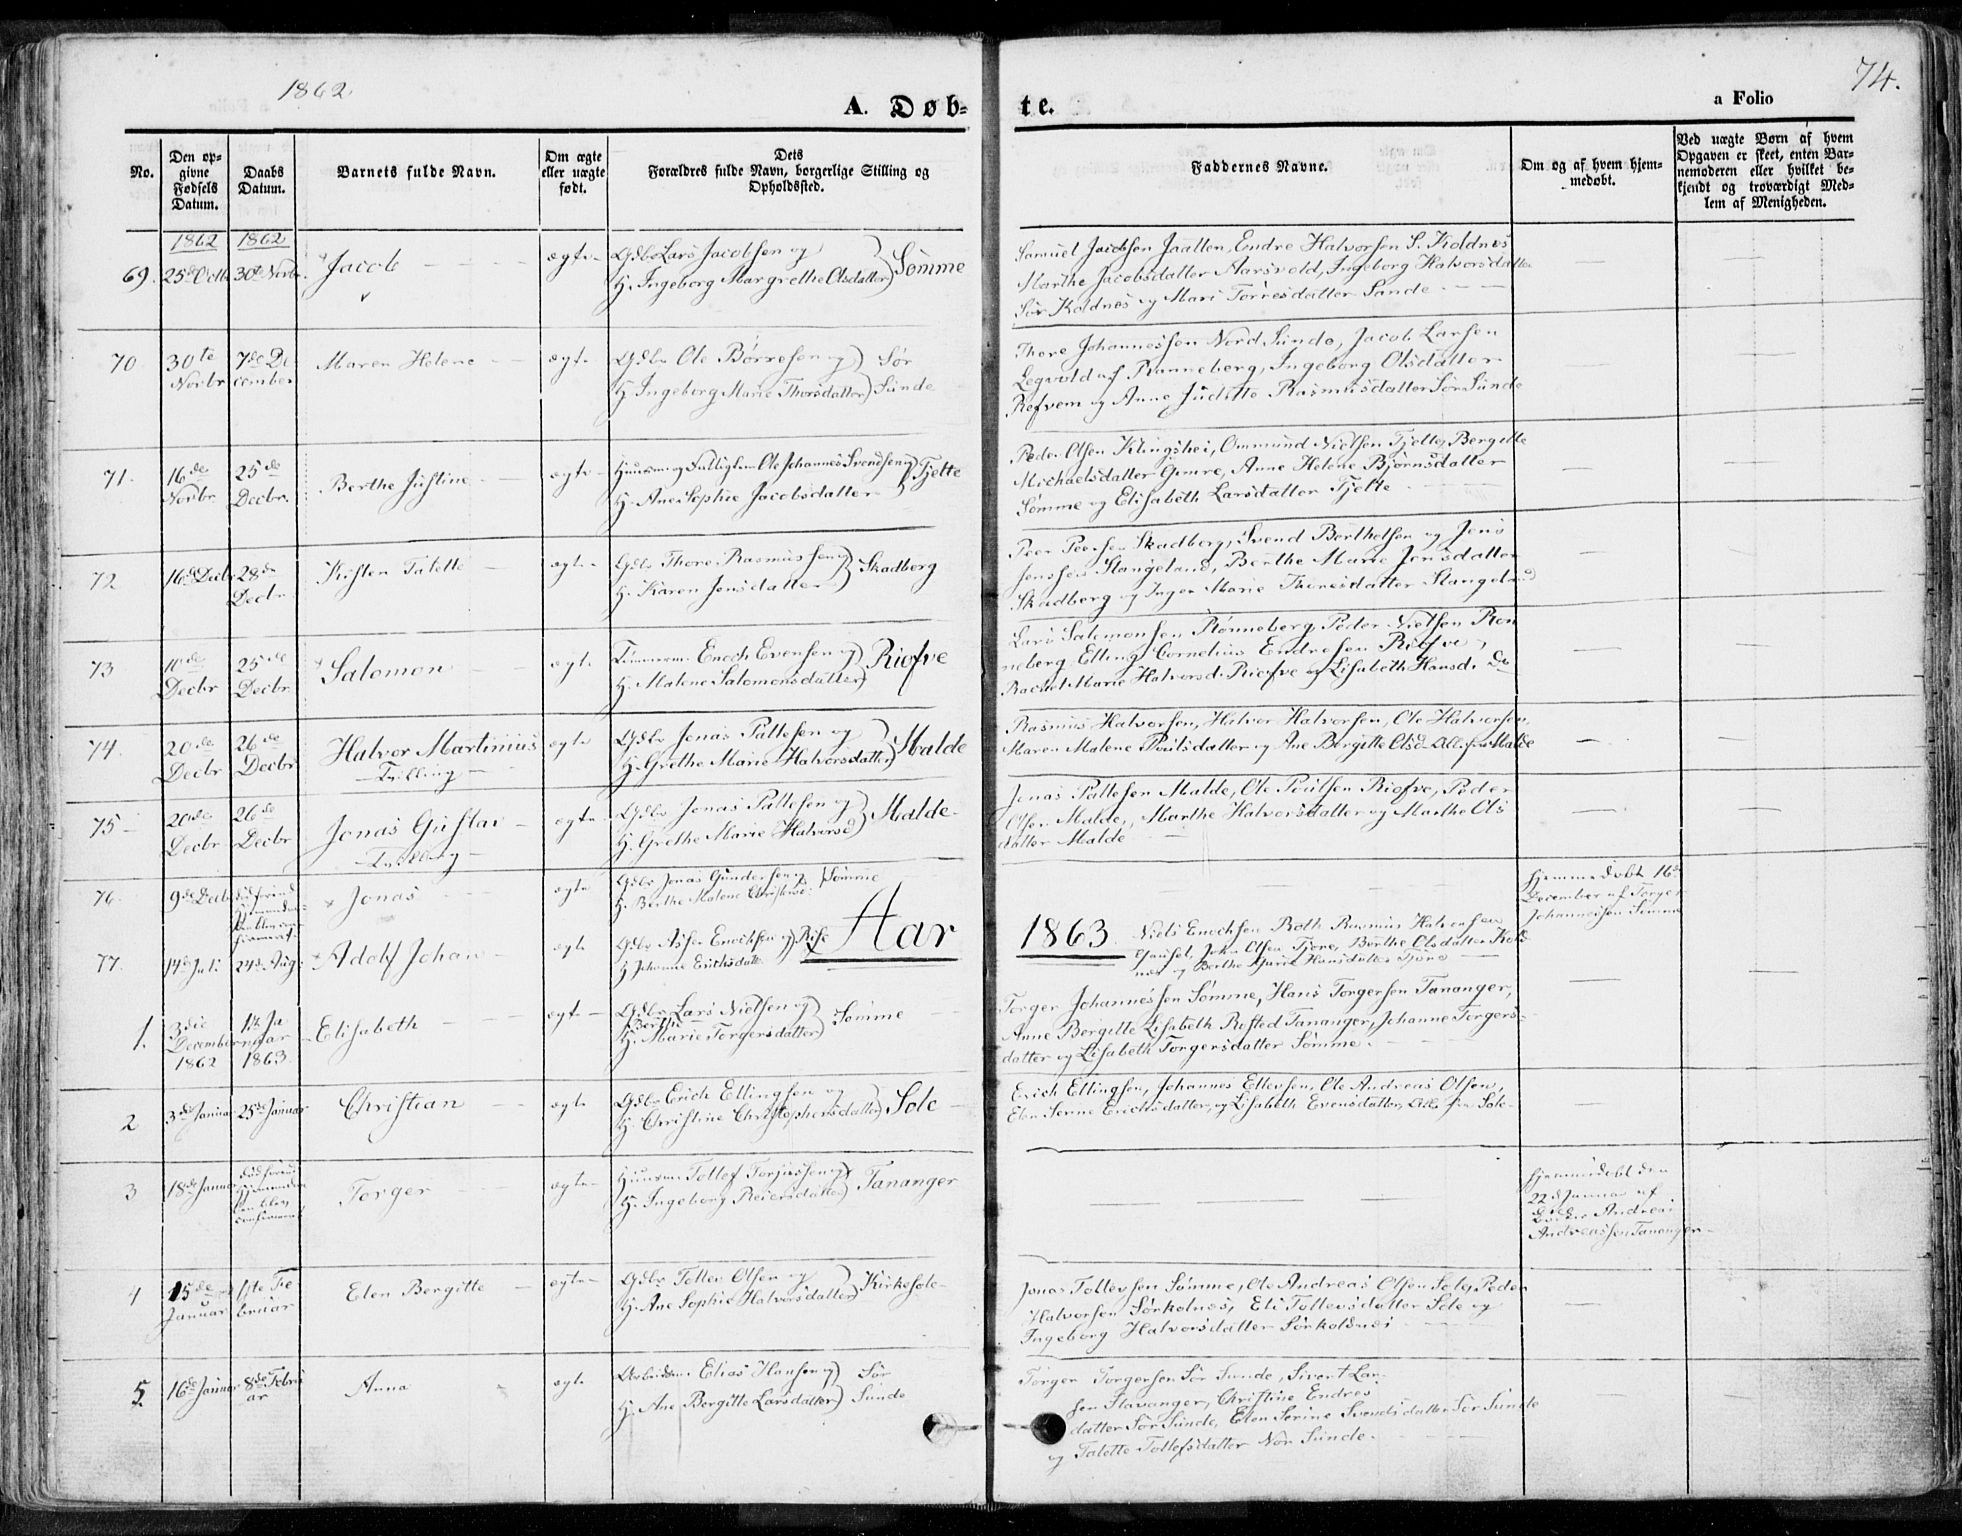 1862
74.
A. Døb-
te.
a Folio
No.
Den op-
givne
Fødsels
Datum.
Daabs
Datum.
Barnets fulde Navn.
Om ægte
eller uægte
født.
Dets
Forældres fulde Navn, borgerlige Stilling og
Opholdssted.
Faddernes Navne.
Om og af hvem hjem-
medøbt.
Ved uægte Børn af hvem
Opgaven er skeet, enten Bar-
nemoderen eller hvilket be-
kjendt og troværdigt Med-
lem af Menigheden.
1862 1862
69. 25de Octb 30te Novbr. Jacob ægte Gdbr Lars Jacobsen og
H. Ingeborg Margrethe Olsdatter) Sømme
Samuel Jacobsen Jaatten, Endre Halvorsen S. Koldnes
Marthe Jacobsdatter Aarsvold, Ingeborg Halvorsdatter
Sør Koldnes og Mari Torresdatter Sande
70 30te Novbr 7de December Maren Helene ægte Gdbr Ole Børresen og) Sør
H Ingeborg Marie Thorsdatter) Sunde
Thore Johannessen Nord Sunde, Jacob Larsen
Legvold af Ranneberg, Ingeborg Olsdatter
Refvem og Anne Judithe Rasmusdatter Sør Sunde
71. 16de Novbr 25de Decbr. Berthe Justine ægte Huusm og Fattiglem Ole Johannes Svendsen og
H. Ane Sophie Jacobsdatter Tjelte
Peder Olsen Klingshei, Ommund Nielsen Tjelte, Bergitte
Michaelsdatter Gimre, Anne Helene Bjørnsdatter
Sømme og Elisabeth Larsdatter Tjelte
72 16de Decbr 28de Decbr Kisten Talette ægte Gdbr Thore Rasmussen og
H. Karen Jensdatter) Skadberg
Peer Peersen Skadberg, Svend Berthelsen og Jens
Jenssen Stangeland, Berthe Marie Jensdatter
Skadberg og Inger Marie Thoresdatter Stangeland
73 10de Decbr 25de Decbr Salomon ægte Tømmerm. Enoch Evensen og)
H. Malene Salomonsdatter) Riofve
Lars Salomonsen Rønneberg, Peder Nielsen Røn
neberg, Elling Cornelius Endresen Riofve,
Rachel Marie Halvorsd. Riofve og Lisabeth Hansd. Do
74. 20de Decbr 26de Decbr Halvor Martinius ægte Gdbr Jonas Pallesen og
Tvilling
H. Grethe Marie Halvorsdatter) Malde
Rasmus Halvorsen, Halvor Halvorsen, Ole Halvorsen,
Maren Malene Poulsdatter og Ane Bergitte Olsd. Alle fra Malde
75 20de Decbr 26de Decbr Jonas Gustav ægte Gdbr Jonas Pallesen og
Tvilling
H. Grethe Marie Halvorsd) Malde
Jonas Pallesen Malde, Ole Poulsen Riofve, Peder
Olsen Malde, Marthe Halvorsdatter og Marthe Ols
datter Malde
76. 9de Decbr død forind Hjemmedaaben blev confirmeret Jonas ægte Gdbr Jonas Gundersen og Sømme
H. Berthe Malene Christensd.
Hjemmedøbt 16de
December af Torger
Johannesen Sømme
Aar
1863
77. 14de Juli 24de Aug Adolf Johan ægte Gdbr Asser Enochsen og) Rise
H Johanne Erichsdatter
Niels Enochsen Roth Rasmus Halvorsen
Gausel, John Olsen Tjore, Berthe Olsdatter Kold
nes og Berthe Marie Hansdatter Tjore
1. 3die December 1862 1ste Januar 1863. Elisabeth ægte Gdbr Lars Nielsen og
Berthe
H. Marie Torgersdatter) Sømme
Torger Johannessen Sømme, Hans Torgersen Tananger,
Anne Bergitte Lisabeth Rosted Tananger, Johanne Torgers-
datter og Lisabeth Torgersdatter Sømme.
2 3de Januar 25de Januar Christian ægte Gdbr Erich Ellingsen og
H. Christine Christophersdatter) Sole
Erich Ellingsen, Johannes Ellevsen, Ole Andreas Olsen,
Elen Serine Erichsdatter, og Lisabeth Evensdatter, Alle fra Sole
3 18de Januar død forend Hjemmedaaben blev confirmeret Torger ægte Huusm. Tollef Torjussen og
H. Ingeborg Reiersdatter) Tananger
Hjemmedøbt den
22de Januar af
Gdbr Andreas
Andreassen Tananger
4 15de Januar 1ste Februar Elen Bergitte ægte Gdbr Tollev Olsen og
H. Ane Sophie Halvorsdatter) Kirkesole
Jonas Tollevsen Sømme, Ole Andreas Olsen Sole, Peder
Halvorsen Sørkolnes, Eli Tollevsdatter Sole og
Ingeborg Halvorsdatter Sørkoldnes
5. 16de Januar 8de Februar Anna ægte Arbeidsm. Elias Hansen og) Sør
H. Ane Bergitte Larsdatter) Sunde
Torger Torgersen Sør Sunde, Sivert Lar-
sen Stavanger, Christine Endres
datter Sør Sunde, Elen Serine Svendsdatter Sør Sunde
og Talette Tollefsdatter Nor Sunde.